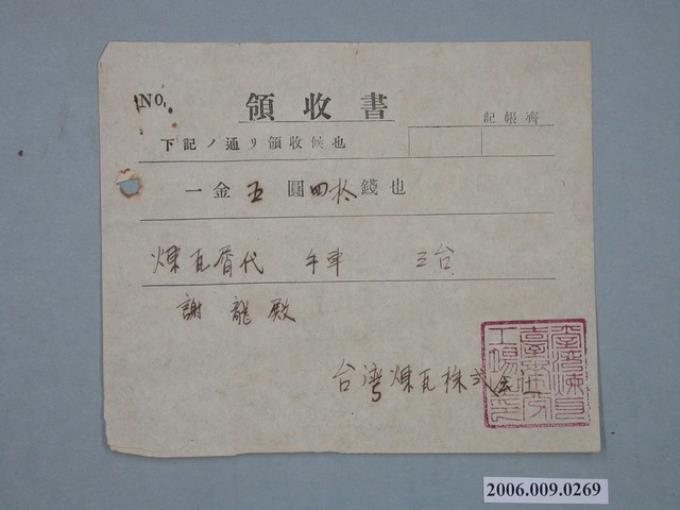 No.
領收書
記帳濟
下記ノ通リ領收候也
一金五圓四拾錢也
煉瓦屑代 牛車 三台
謝龍殿
台湾煉瓦株式会社
2006.009.0269